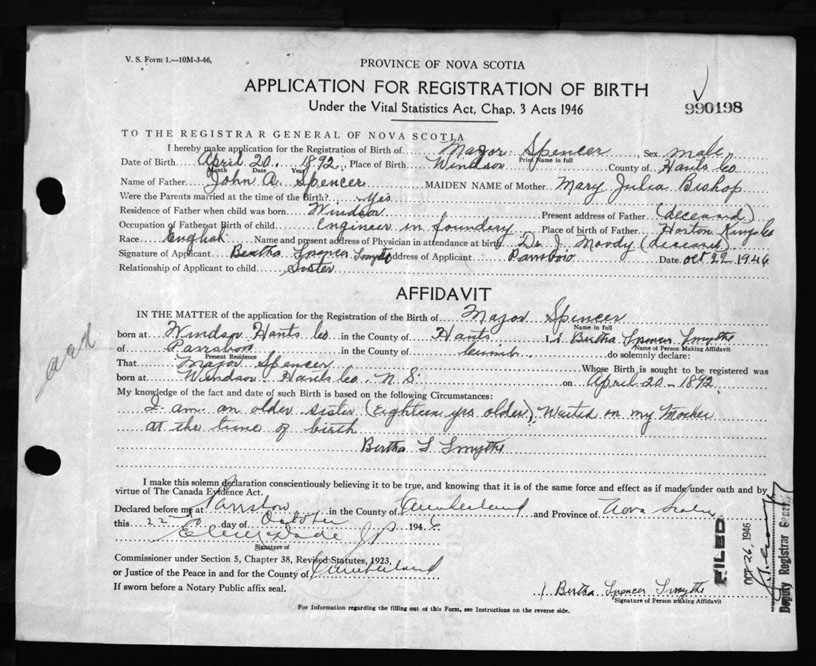 V. S. Form 1.—10M-3-46,
PROVINCE OF NOVA SCOTIA
APPLICATION FOR REGISTRATION OF BIRTH
Under the Vital Statistics Act, Chap. 3 Acts 1946
990198
TO THE REGISTRAR GENERAL OF NOVA SCOTIA
I hereby make application for the Registration of Birth of Major Spencer, Sex male
Print Name in full
Date of Birth April 20. 1892, Place of Birth Windsor County of Hants Co
Month Date Year
Name of Father John A. Spencer MAIDEN NAME of Mother Mary Julia Bishop
Were the Parents married at the time of the Birth? Yes
Residence of Father when child was born Windsor Present address of Father (deceased)
Occupation of Father at Birth of child Engineer in foundery Place of birth of Father Horton Kings Co
Race English Name and present address of Physician in attendance at birth Dr. J. Moody (deceased)
Signature of Applicant Bertha Spencer Smythe Address of Applicant Parrsboro Date Oct 22 1946
Relationship of Applicant to child Sister
AFFIDAVIT
IN THE MATTER of the application for the Registration of the Birth of Major Spencer
Name in full
born at Windsor Hants Co in the County of Hants I, Bertha Spencer Smythe
Name of Person Making Affidavit
of Parrsboro in the County of Cumb. do solemnly declare:
Present Residence
That Major Spencer Whose Birth is sought to be registered was
born at Windsor Hants Co. N.S. on April 20 - 1892
My knowledge of the fact and date of such Birth is based on the following Circumstances:
I am an older sister (Eighteen yrs older). Waited on my Mother
at the time of birth
Bertha S Smythe
I make this solemn declaration conscientiously believing it to be true, and knowing that it is of the same force and effect as if made under oath and by
virtue of The Canada Evidence Act.
Declared before me at Parrsboro in the County of Cumberland and Province of Nova Scotia
this 22 day of October 1946
J P
Signature of
Commissioner under Section 5, Chapter 38, Revised Statutes, 1923,
or Justice of the Peace in and for the County of Cumberland
If sworn before a Notary Public affix seal.
Bertha Spencer Smythe
Signature of Person making Affidavit
For Information regarding the filling out of this Form, see Instructions on the reverse side.
FILED
OCT 26, 1946
Deputy Registrar General